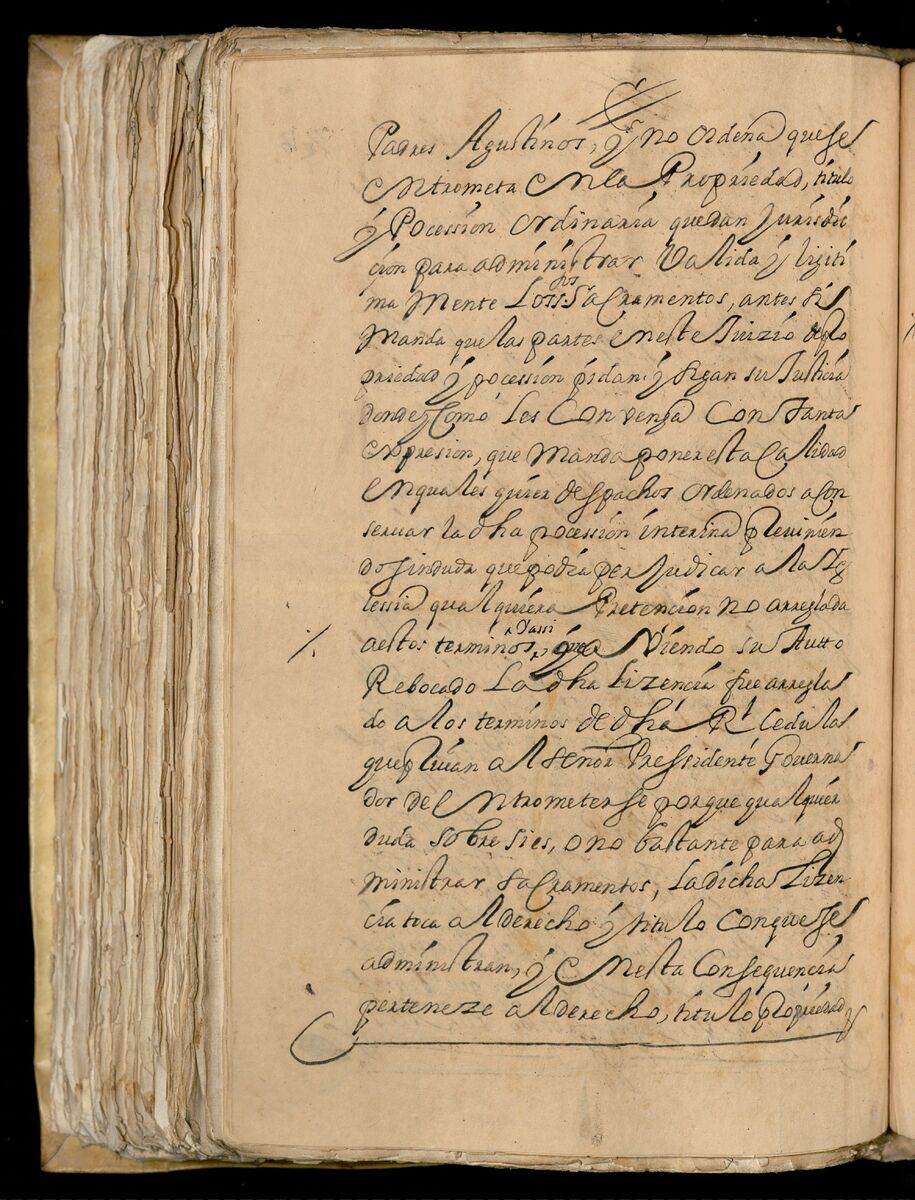 Padres Agustinos, y no ordena que se
entrometa en la Propriedad, titulo
y Pocession ordinaria que dan Jurisdic
cion para administrar Valida y ligiti
ma Mente Los Sacramentos, antes si
Manda que las partes en este Juizio de pro
priedad y pocession pidan y sigan su Justicia
donde y Como Les Convenga Con tanta
expresion, que Manda poner esta Calidad
en quales quier despachos ordenados a Con
seruar la dha pocession interina previnien
do sin duda que podia perJudicar a la Ig
lessia qualquiera Pretencion no arreglada
a estos terminos, Yassi
Viendo su Autto
Rebocado La dha Lizencia fue arregla
do a los terminos de dha Rl Cedulas
que privan al señor Pressidente Governa
dor de entrometerse porque qualquier
duda sobre si es, o no bastante para ad
ministrar sacramentos, La dicha Lizen
cia toca al derecho y titulo con que se
administran, y en esta Consequencia
perteneze al derecho, titulo propriedad y